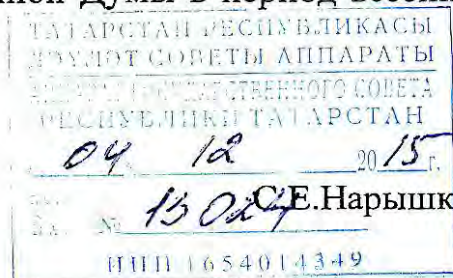 ной Думы в период весенн
ТАТАРСТАН РЕСПУБЛИКАСЫ
ДӘҮЛӘТ СОВЕТЫ АППАРАТЫ
АППАРАТ ГОСУДАРСТВЕННОГО СОВЕТА
РЕСПУБЛИКИ ТАТАРСТАН
04 12 2015 г.
№
С.Е.Нарышк
ИНН 1654014349